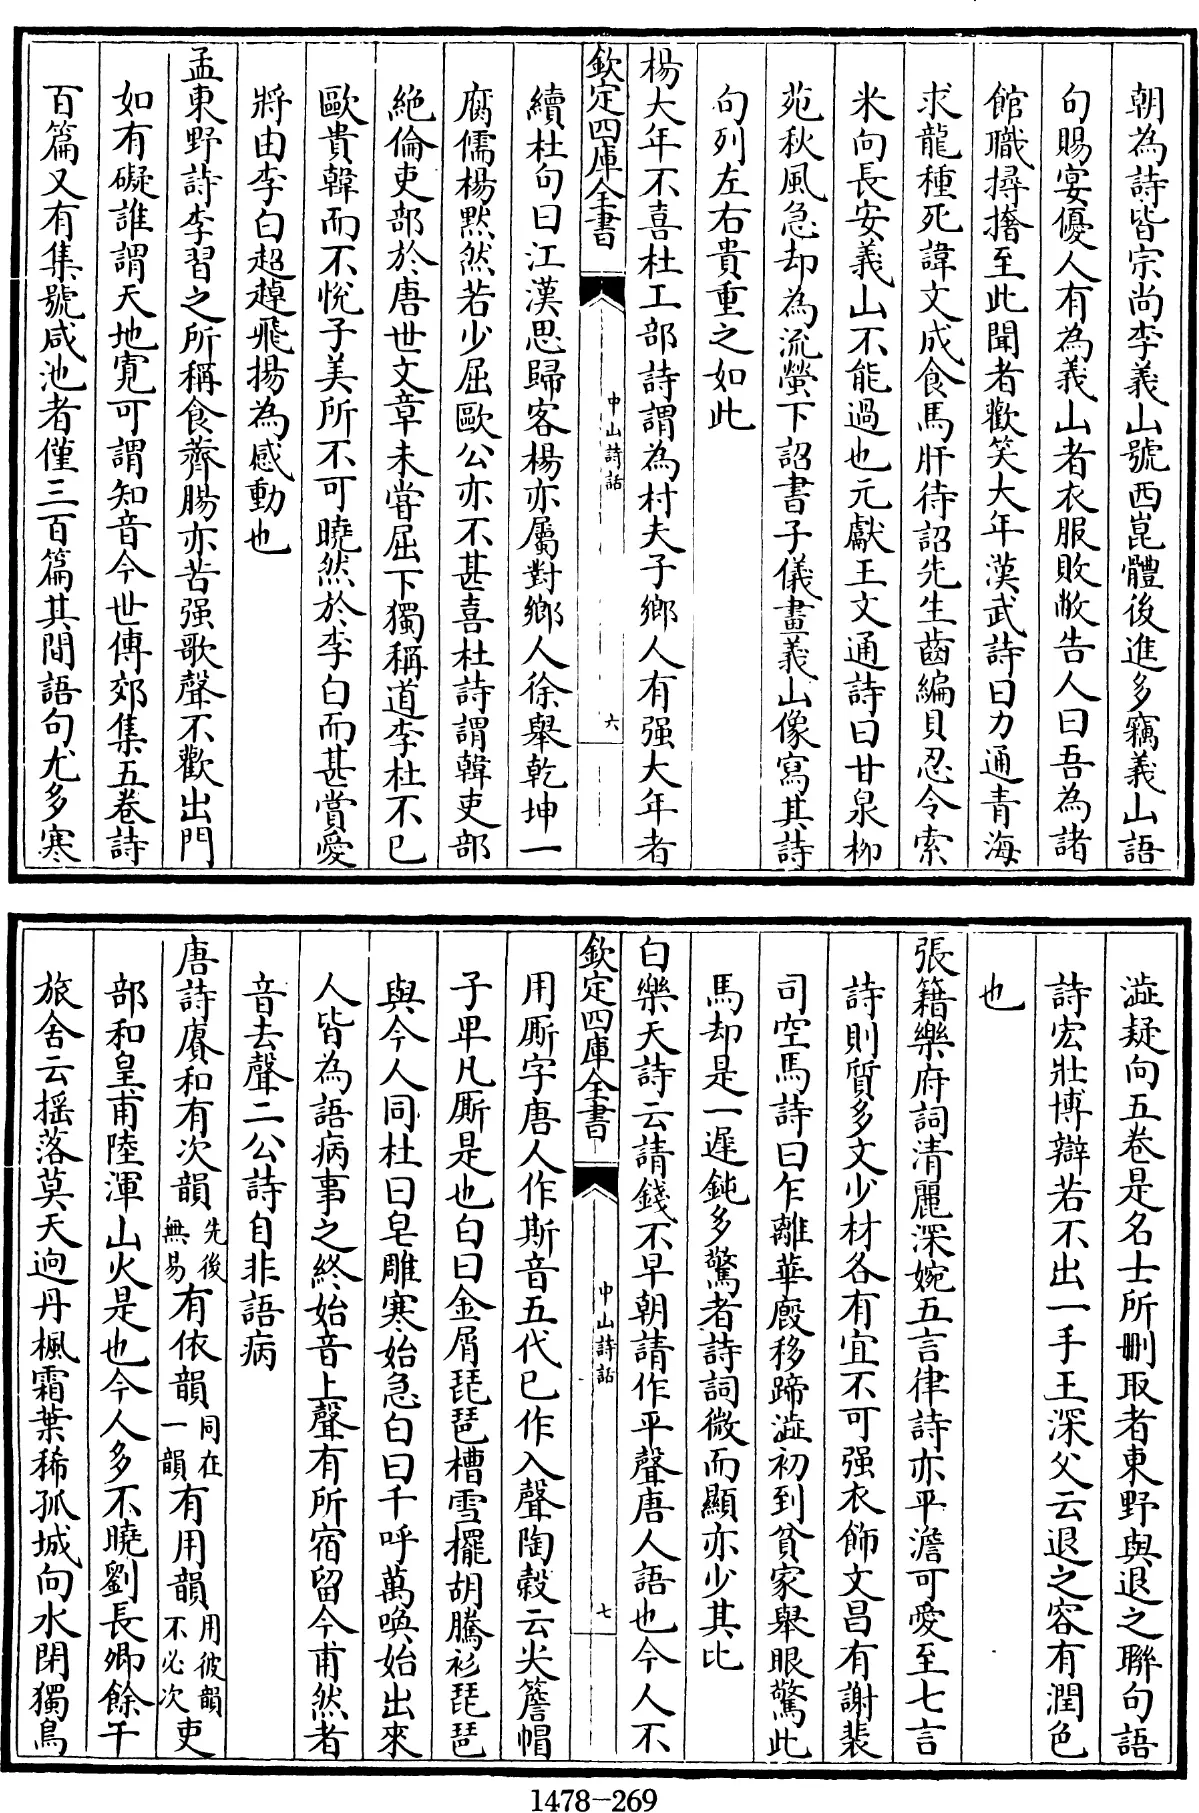 朝為詩皆宗尚李義山號西崑體後進多竊義山語
句賜宴優人有為義山者衣服敗敝告人曰吾為諸
館職撏撦至此聞者歡笑大年漢武詩曰力通青海
求龍種死諱文成食馬肝待詔先生齒編貝忍令索
米向長安義山不能過也元獻王文通詩曰甘泉柳
苑秋風急却為流螢下詔書子儀畫義山像寫其詩
句列左右貴重之如此
楊大年不喜杜工部詩謂為村夫子鄉人有强大年者
欽定四庫全書
中山詩話
六
續杜句曰江漢思歸客楊亦屬對鄉人徐舉乾坤一
腐儒楊黙然若少屈歐公亦不甚喜杜詩謂韓吏部
絶倫吏部於唐世文章未嘗屈下獨稱道李杜不已
歐貴韓而不悅子美所不可曉然於李白而甚賞愛
將由李白超趠飛揚為感動也
孟東野詩李習之所稱食薺腸亦苦强歌聲不歡出門
如有礙誰謂天地寛可謂知音今世傳郊集五卷詩
百篇又有集號咸池者僅三百篇其間語句尤多寒
澁疑向五卷是名士所刪取者東野與退之聯句語
詩宏壯博辯若不出一手王深父云退之容有潤色
也
張籍樂府詞清麗深婉五言律詩亦平澹可愛至七言
詩則質多文少材各有宜不可强衣飾文昌有謝裴
司空馬詩曰乍離華廏移蹄澁初到貧家舉眼驚此
馬却是一遲鈍多驚者詩詞微而顯亦少其比
白樂天詩云請錢不早朝請作平聲唐人語也今人不
欽定四庫全書
中山詩話
七
用厮字唐人作斯音五代已作入聲陶穀云尖簷帽
子卑凡厮是也白曰金屑琵琶槽雪擺胡騰衫琵琶
與今人同杜曰皂雕寒始急白曰千呼萬喚始出來
人皆為語病事之終始音上聲有所宿留今甫然者
音去聲二公詩自非語病
唐詩賡和有次韻先後無易有依韻同在一韻有用韻用彼韻不必次吏
部和皇甫陸渾山火是也今人多不曉劉長卿餘干
旅舍云揺落莫天逈丹楓霜葉稀孤城向水閉獨鳥
1478-269